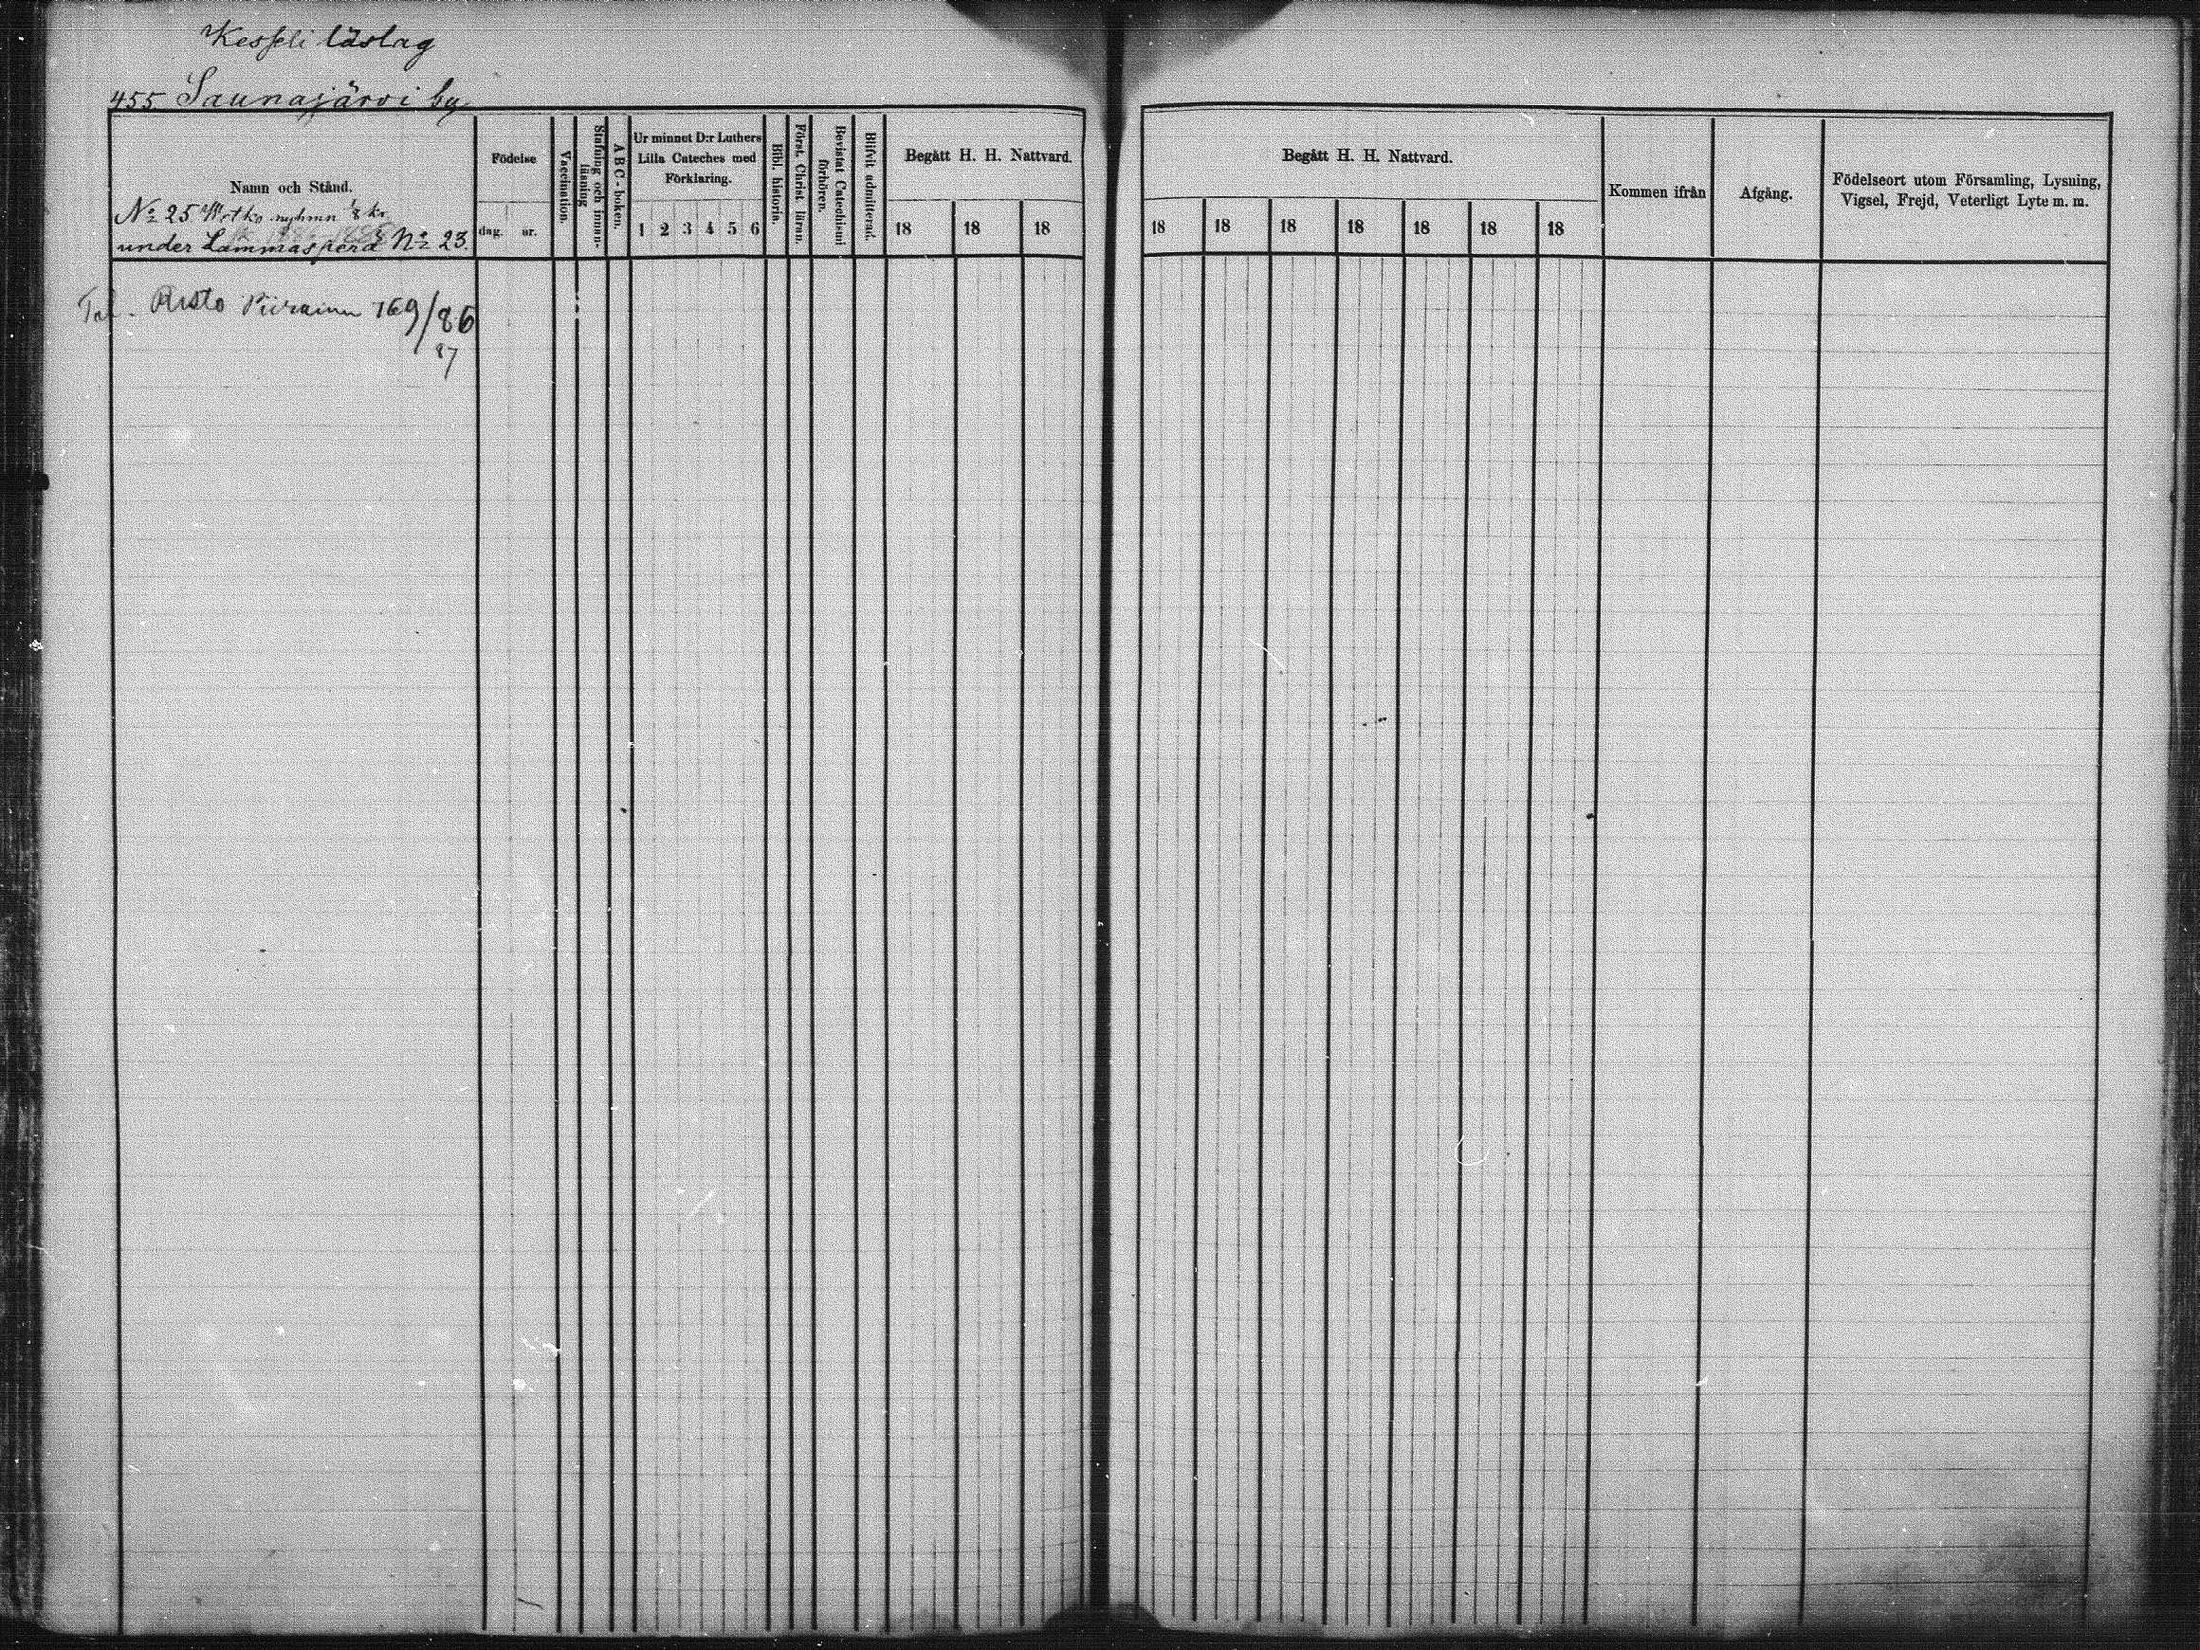 Kesseli läslag
455 Saunajärvi by
Namn och Stånd.
No 25 Motko nyhmn 1/8 kr
under Lammasperä No 23.
Födelse
dag. år.
Vaccination.
Stafning och innan-
läsning
A B C-boken.
Ur minnet D:r Luthers
Lilla Cateches med
Förklaring.
1 2 3 4 5 6
Bibl. historia.
Först. Christ läran.
Bevistat Catechismi
förhören.
Blifvit admitterad.
Begått H. H. Nattvard.
18 18 18
Begått H. H. Nattvard.
18 18 18 18 18 18 18
Kommen ifrån
Afgång.
Födelseort utom Församling, Lysning,
Vigsel, Frejd, Veterligt Lyte m. m.
Risto Piirainen 169/86
87